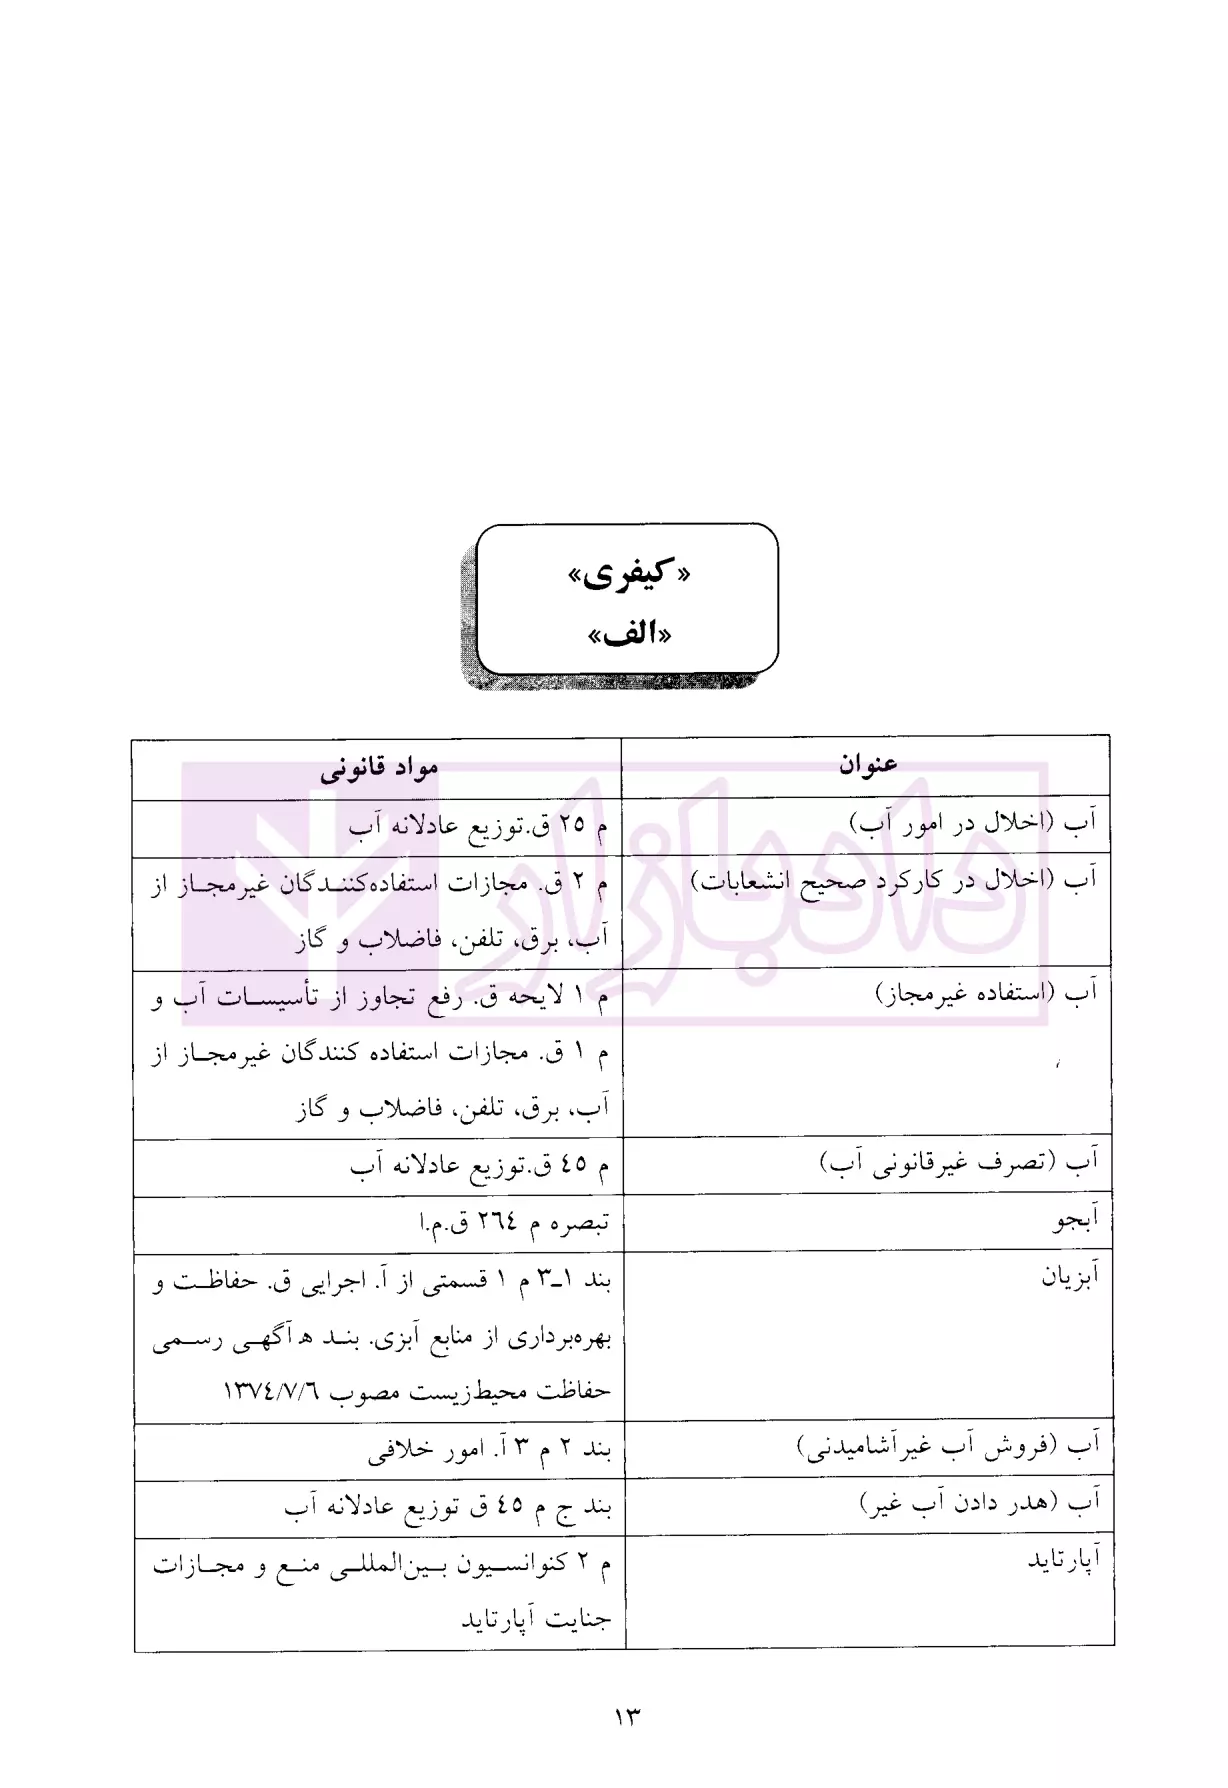 «کیفری»
«الف»
عنوان
مواد قانونی
آب (اخلال در امور آب)
م ٢٥ ق.توزیع عادلانه آب
آب (اخلال در کارکرد صحیح انشعابات)
م ٢ ق. مجازات استفاده‌کنندگان غیرمجاز از
آب، برق، تلفن، فاضلاب و گاز
آب (استفاده غیرمجاز)
م ١ لایحه ق. رفع تجاوز از تأسیسات آب و
م ١ ق. مجازات استفاده کنندگان غیرمجاز از
آب، برق، تلفن، فاضلاب و گاز
آب (تصرف غیرقانونی آب)
م ٤٥ ق.توزیع عادلانه آب
آبجو
تبصره م ٢٦٤ ق.م.ا
آبزیان
بند ١-٣ م ١ قسمتی از آ. اجرایی ق. حفاظت و
بهره‌برداری از منابع آبزی. بند ه‍ آگهی رسمی
حفاظت محیط‌زیست مصوب ١٣٧٤/٧/٦
آب (فروش آب غیرآشامیدنی)
بند ٢ م ٣ آ. امور خلافی
آب (هدر دادن آب غیر)
بند ج م ٤٥ ق توزیع عادلانه آب
آپارتاید
م ٢ کنوانسیون بین‌المللی منع و مجازات
جنایت آپارتاید
دادبازار
١٣